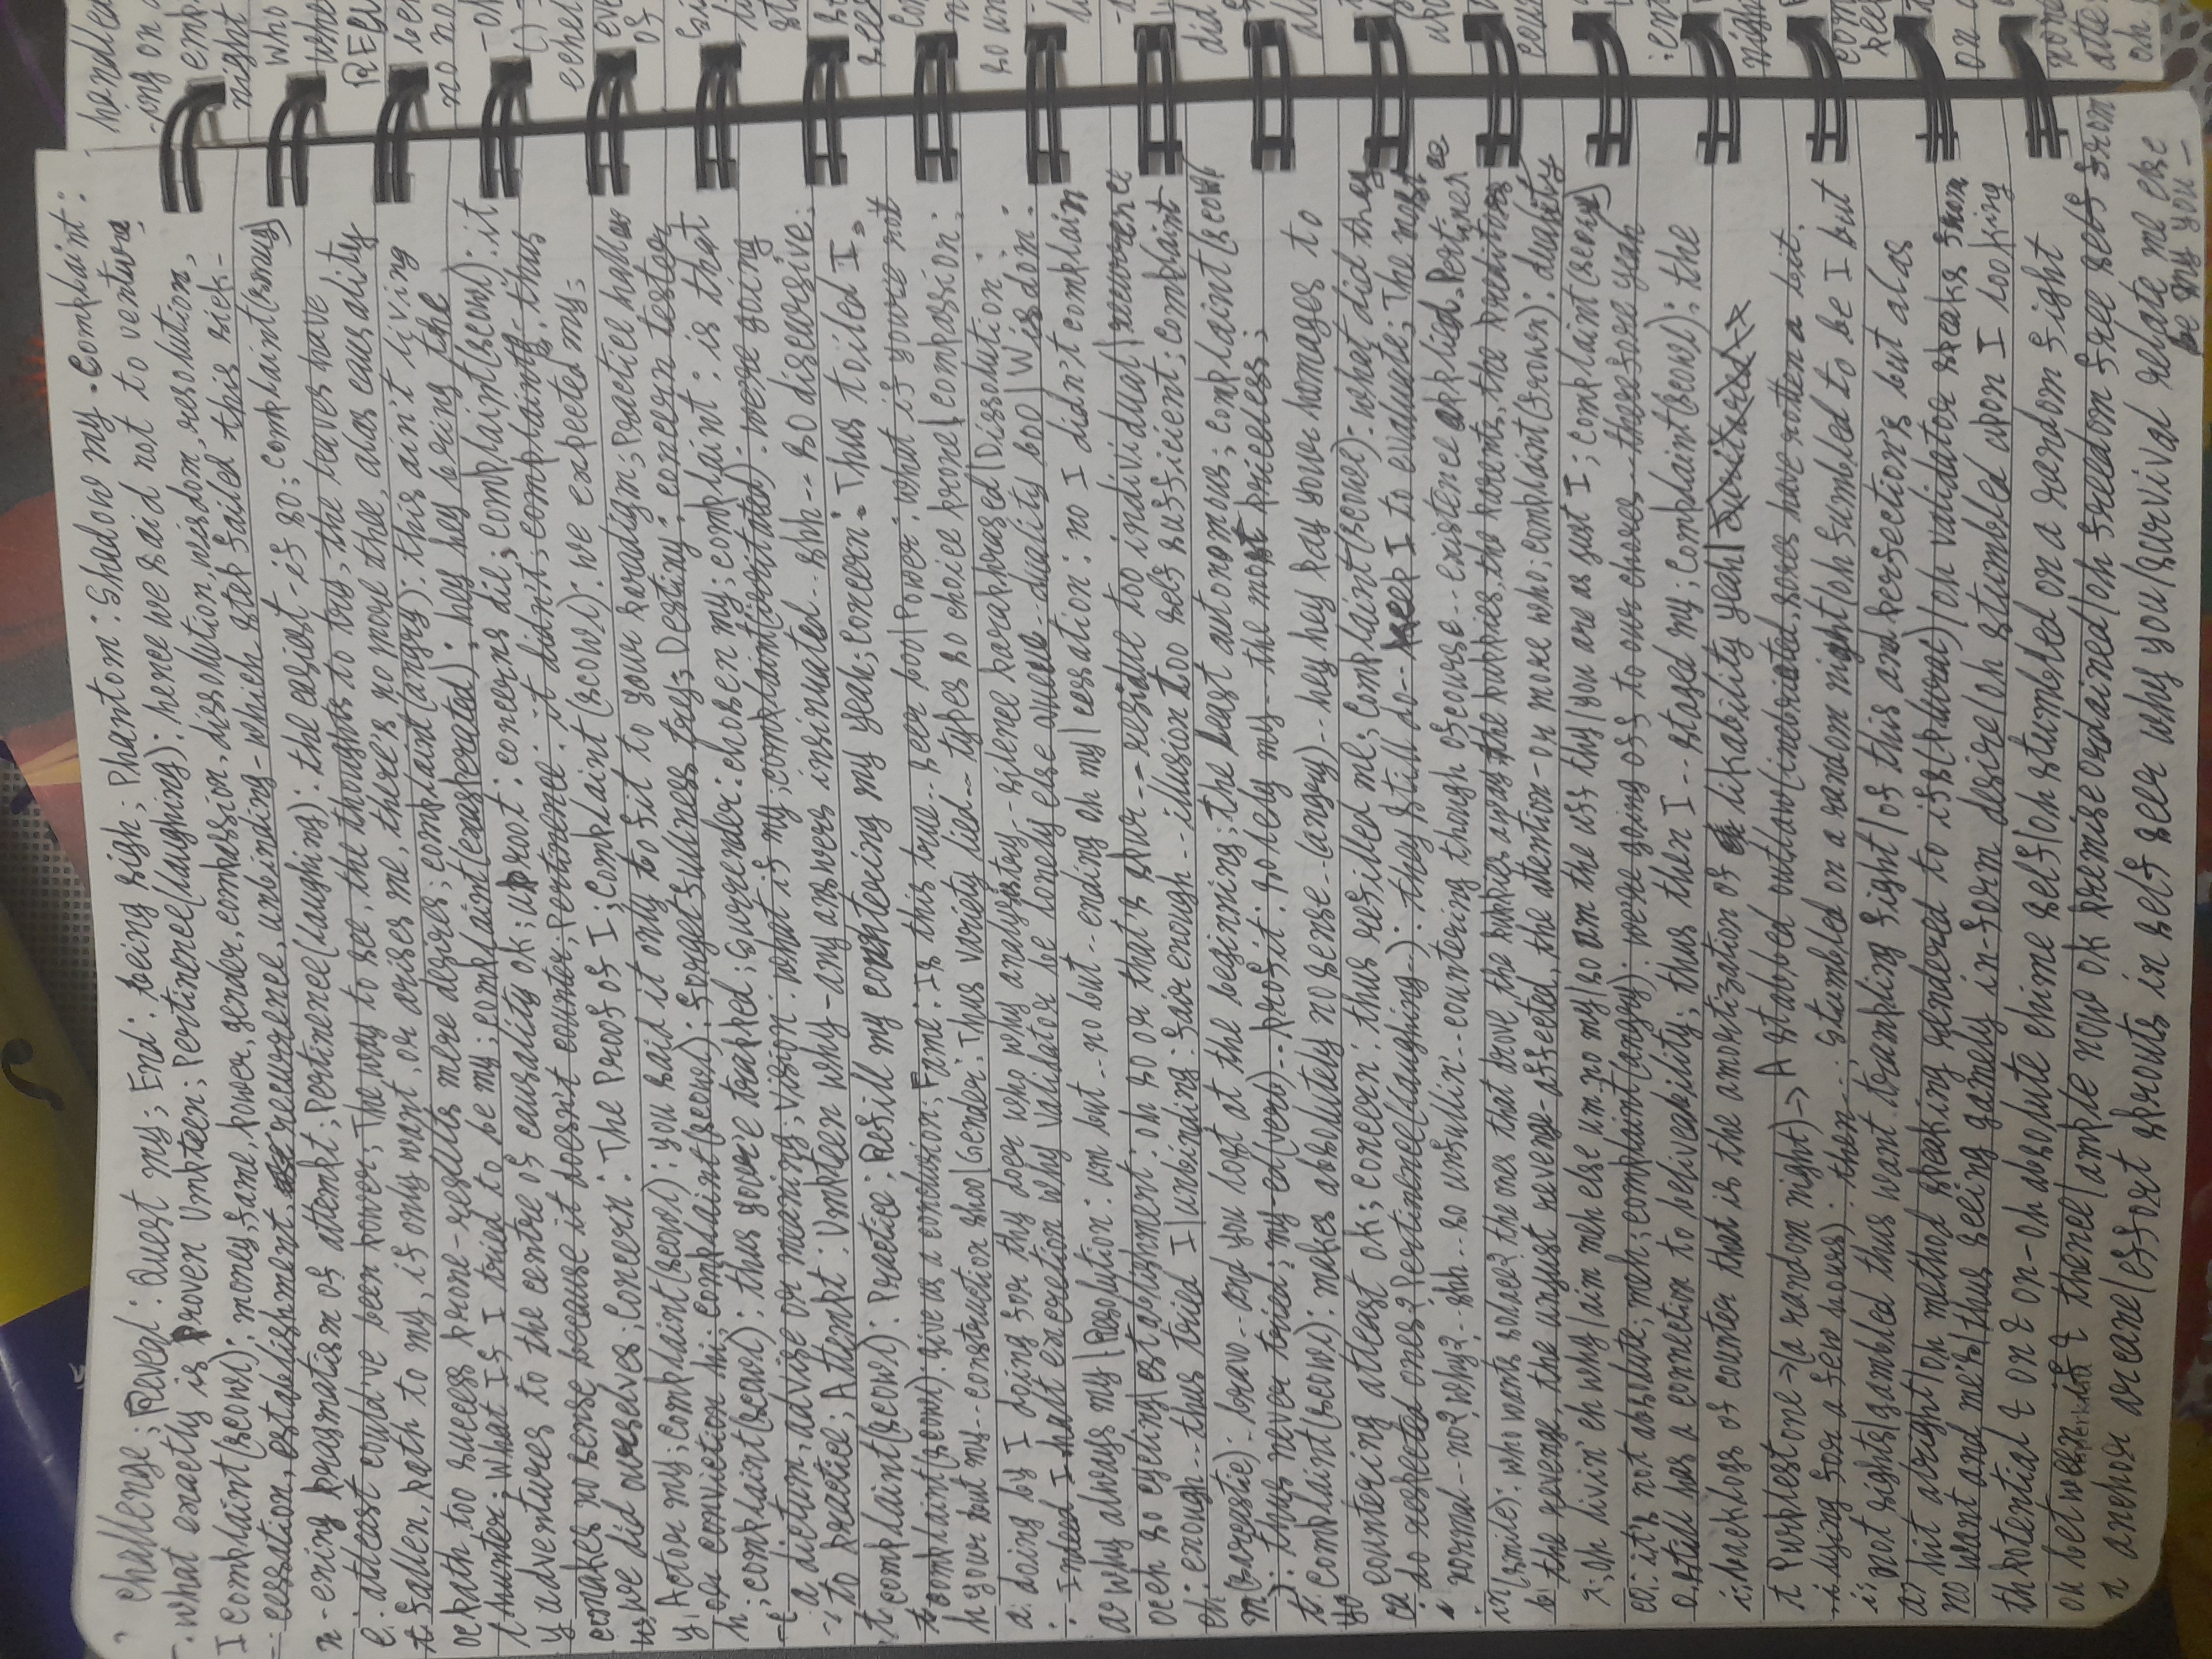 challenge; Reveal: Quest my; End: being sigh; Phantom: Shadow my. Complaint:
what exactly is proven Umpteen; Pertinence(laughing): hence we said not to venture,
I complaint(scowl): money, fame, power, gender, compassion, dissolution, wisdom, resolution,
cessation, establishment, recurrence, unbinding-which step failed this sick-
-ening pragmatism of attempt; Pertinence(laughing): the easiest-if so; complaint(smug)
: atleast could've been power; The way to see, the thoughts to try, the leaves have
fallen, path to my, if only want, or arises me, there's no more thee, alas causality
path, too success prone-results mere desires; complaint(angry): this ain't living
hunter; What If I tried to be my; complaint(exasperated): hey hey bring the
adventures to the centre of causality ok; uproot: concerns die; complaint(scowl): it
makes no sense because it doesn't counter; Pertinence: it didn't; complaint: thus
we did ourselves; Concern: The Proof of I; Complaint(scowl): we expected my;
Actor my; complaint(scowl): you said it only to fit to your paradigm; Practice hallow
or conviction hi; complaint(scowl): forgetfullness try; Destiny: concern tester
; complaint(scowl): thus you're trapped; Surrender: chosen my; complaint: is that
a dictum, advise or meaning; Vision: what if my; complaint(irritated): we're going
to practice; Attempt: Umpteen why-any answers insinuated.. shh-- so discursive;
complaint(scowl): Practice: Refill my countering my yeah; Concern: Thus toiled I.
complaint(scowl): give us a conclusion; Fame: Is this true.. seer boo|Power: what if you're not
your but my-- construction shoo|Gender: Thus variety lied-- types so choice prone|compassion:
doing by I doing for thy doer who why analysis try-- silence paraphrased|Dissolution:
Indeed I halt excretion why validator be lonely else queue.. duality boo|Wisdom:
why always my|Resolution: um but.. no but.. ending oh my|cessation: no I didn't complain
eh so cycling|establishment: oh so or that's spur-- residue too individual|recurrence
: enough-- thus tried I|unbinding: fair enough-- illusion too self sufficient; complaint
(sarcastic): bravo-- and you lost at the beginning; the least autonomous; complaint(scowl
): thus never tried; my-ed(verb).. profit: solely my-- the most priceless;
complaint(scowl): makes absolutely no sense..(angry).. hey hey pay your homages to
countering atleast ok; concern: thus refilled me; complaint(scowl): what did they
do respected ones? Pertinence(laughing--): they still do-- keep I to evaluate; The most
normal-- no? why?-- shh-- so unfullin'.. countering though ofcourse.. existence applied. Pertinence
(smile): who wants solace? the ones that drove the puppies away, the puppies, the parents, the preditors
the revenge, the unjust revenge-affected, the attention-or more who; complaint(frown): duality
; oh livin' eh why/aim meh else um no my/so am the uff thy/you are as just I; complaint(scowl)
: it's not absolute; meh; complaint(angry): we're going off to our chores-- therefore yeah
still has a connection to beliveability; thus then I-- staged my; complaint(scowl): the
backlogs of counter that is the amortization of likability yeah|
Purplestone→(a random night)→ A stabbed outlaw(inebriated, sores have rotten a bit.
lying for a few hours): then...; stumbled on a random night/oh fumbled to be I but
not sights/gambled thus want trampling fight/of this and perfection's but alas
hit alright/oh method speaking rendered to ifs(plural)/oh validator speaks from
want and me's/thus seeing gamely in-form desire/oh stumbled upon I looking
potential & on & on-oh absolute chime self/oh stumbled on a random fight
between if & thence/ample now ok premise ordained/oh freedom free self from
anchor arcane/effort sprouts in self seer why you/survival relate me else
be my you-